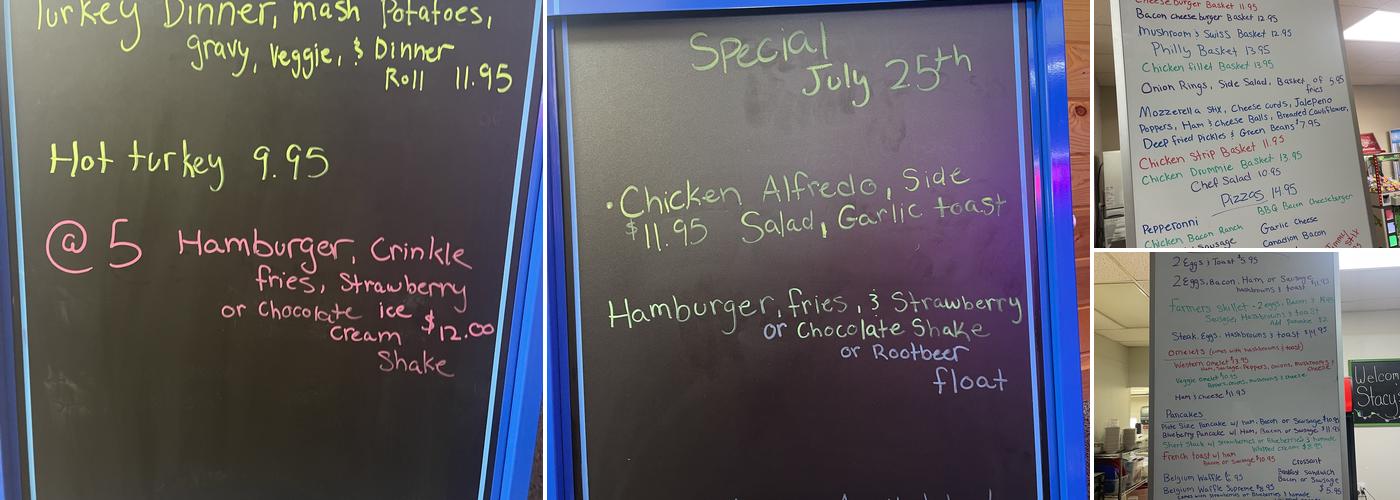 Turkey Dinner, mash Potatoes,
gravy, veggie, & Dinner
Roll 11.95
Hot turkey 9.95
@ 5 Hamburger, Crinkle
fries, Strawberry
or Chocolate ice
cream $12.00
Shake
Special
July 25th
• Chicken Alfredo, Side
$11.95 Salad, Garlic toast
Hamburger, fries, & Strawberry
or Chocolate Shake
or Rootbeer
float
Cheese burger Basket 11.95
Bacon cheeseburger Basket 12.95
Mushroom & Swiss Basket 12.95
Philly Basket 13.95
Chicken fillet Basket 13.95
Onion Rings, Side Salad, Basket of 5.95
fries
Mozzerella Stix, Cheese curds, Jalepeno
Poppers, Ham & Cheese Balls, Breaded Cauliflower,
Deep fried Pickles & Green Beans $7.95
Chicken Strip Basket 11.95
Chicken Drummie Basket 13.95
Chef Salad 10.95
Pizzas 14.95
BBQ Bacon Cheeseburger
Pepperonni
Garlic Cheese
Chicken Bacon Ranch
Canadian Bacon
Sausage
2 Eggs & Toast $5.95
2 Eggs, Bacon, Ham, or Sausage
hashbrowns & toast
farmers skillet - 2 eggs, Bacon &
Sausage, Hashbrowns & toast
Add Pancake $2
Steak, Eggs, Hashbrowns & toast $14.95
Omelets (comes with hashbrowns & toast)
Western omelet $13.95
Ham, Sausage, Peppers, onions, mushrooms &
cheese
Veggie omelet $10.95
onions, mushrooms & cheese
Ham & Cheese $11.95
Pancakes
Plate Size Pancake w/ ham, Bacon or Sausage $10.95
Blueberry Pancake w/ Ham, Bacon or Sausage $11.95
Short Stack w/ Strawberries or Blueberries &
whipped cream $8.95
French toast w/ ham
Bacon or Sausage $10.95
Croissant
Breakfast Sandwich
Belgium Waffle
Bacon or Sausage
Belgium Waffle Supreme $8.95
$5.95
Comes with Strawberries or Blueberries &
Welcome
Stacy's